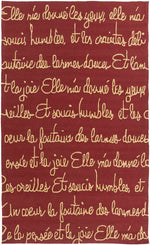 Elle m'a donné les yeux, elle m'a
soucis humbles, et les craintes déli
ontaine des larmes douces. Et l'am
t la joie Elle m'a donné les yeux,
reilles Et soucis humbles, et les c
coeur la fontaine des larmes douces
ensée et la joie, Elle m'a donné le
les oreilles Et soucis humbles, et
Un coeur la fontaine des larmes d
La pensée, et la joie Elle m'a do